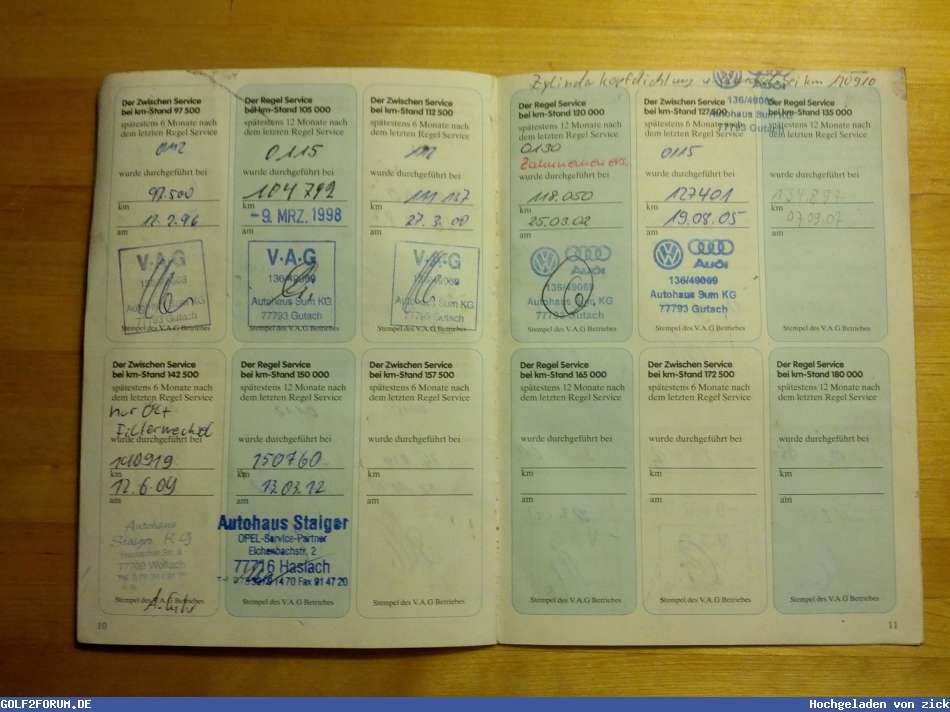 Zylinderkopfdichtung u. bei km 110910
Der Zwischen Service
bei km-Stand 97 500
spätestens 6 Monate nach
dem letzten Regel Service
wurde durchgeführt bei
97.500
km
12.2.96
am
V·A·G
Autohaus Sum KG
77793 Gutach
Stempel des V.A.G Betriebes
Der Regel Service
bei km-Stand 105 000
spätestens 12 Monate nach
dem letzten Regel Service
0115
wurde durchgeführt bei
104792
km
-9. MRZ. 1998
am
V·A·G
136/49069
Autohaus Sum KG
77793 Gutach
Stempel des V.A.G Betriebes
Der Zwischen Service
bei km-Stand 112 500
spätestens 6 Monate nach
dem letzten Regel Service
wurde durchgeführt bei
111 137
km
27.3.00
am
V·A·G
Autohaus Sum KG
77793 Gutach
Stempel des V.A.G Betriebes
Der Regel Service
bei km-Stand 120 000
spätestens 12 Monate nach
dem letzten Regel Service
0130
wurde durchgeführt bei
118.050
km
25.03.02
am
Audi
136/49069
Autohaus Sum KG
77793 Gutach
Stempel des V.A.G Betriebes
Der Zwischen Service
bei km-Stand 127 500
spätestens 6 Monate nach
dem letzten Regel Service
0115
wurde durchgeführt bei
127401
km
19.08.05
am
Audi
136/49069
Autohaus Sum KG
77793 Gutach
Stempel des V.A.G Betriebes
Audi
136/49069
Autohaus Sum KG
77793 Gutach
Der Regel Service
bei km-Stand 135 000
spätestens 12 Monate nach
dem letzten Regel Service
wurde durchgeführt bei
km
07.09.07
am
Stempel des V.A.G Betriebes
Der Zwischen Service
bei km-Stand 142 500
spätestens 6 Monate nach
dem letzten Regel Service
nur Öl+
Filterwechsel
wurde durchgeführt bei
140919
km
12.6.09
am
Autohaus
Staiger KG
77709 Wolfach
Stempel des V.A.G Betriebes
Der Regel Service
bei km-Stand 150 000
spätestens 12 Monate nach
dem letzten Regel Service
wurde durchgeführt bei
150760
km
13.03.12
am
Autohaus Staiger
OPEL-Service-Partner
Eichenbachstr. 2
77716 Haslach
Fax 91 47 20
Stempel des V.A.G Betriebes
Der Zwischen Service
bei km-Stand 157 500
spätestens 6 Monate nach
dem letzten Regel Service
wurde durchgeführt bei
km
am
Stempel des V.A.G Betriebes
Der Regel Service
bei km-Stand 165 000
spätestens 12 Monate nach
dem letzten Regel Service
wurde durchgeführt bei
km
am
Stempel des V.A.G Betriebes
Der Zwischen Service
bei km-Stand 172 500
spätestens 6 Monate nach
dem letzten Regel Service
wurde durchgeführt bei
km
am
Stempel des V.A.G Betriebes
Der Regel Service
bei km-Stand 180 000
spätestens 12 Monate nach
dem letzten Regel Service
wurde durchgeführt bei
km
am
Stempel des V.A.G Betriebes
10
11
GOLF2FORUM.DE
Hochgeladen von zick